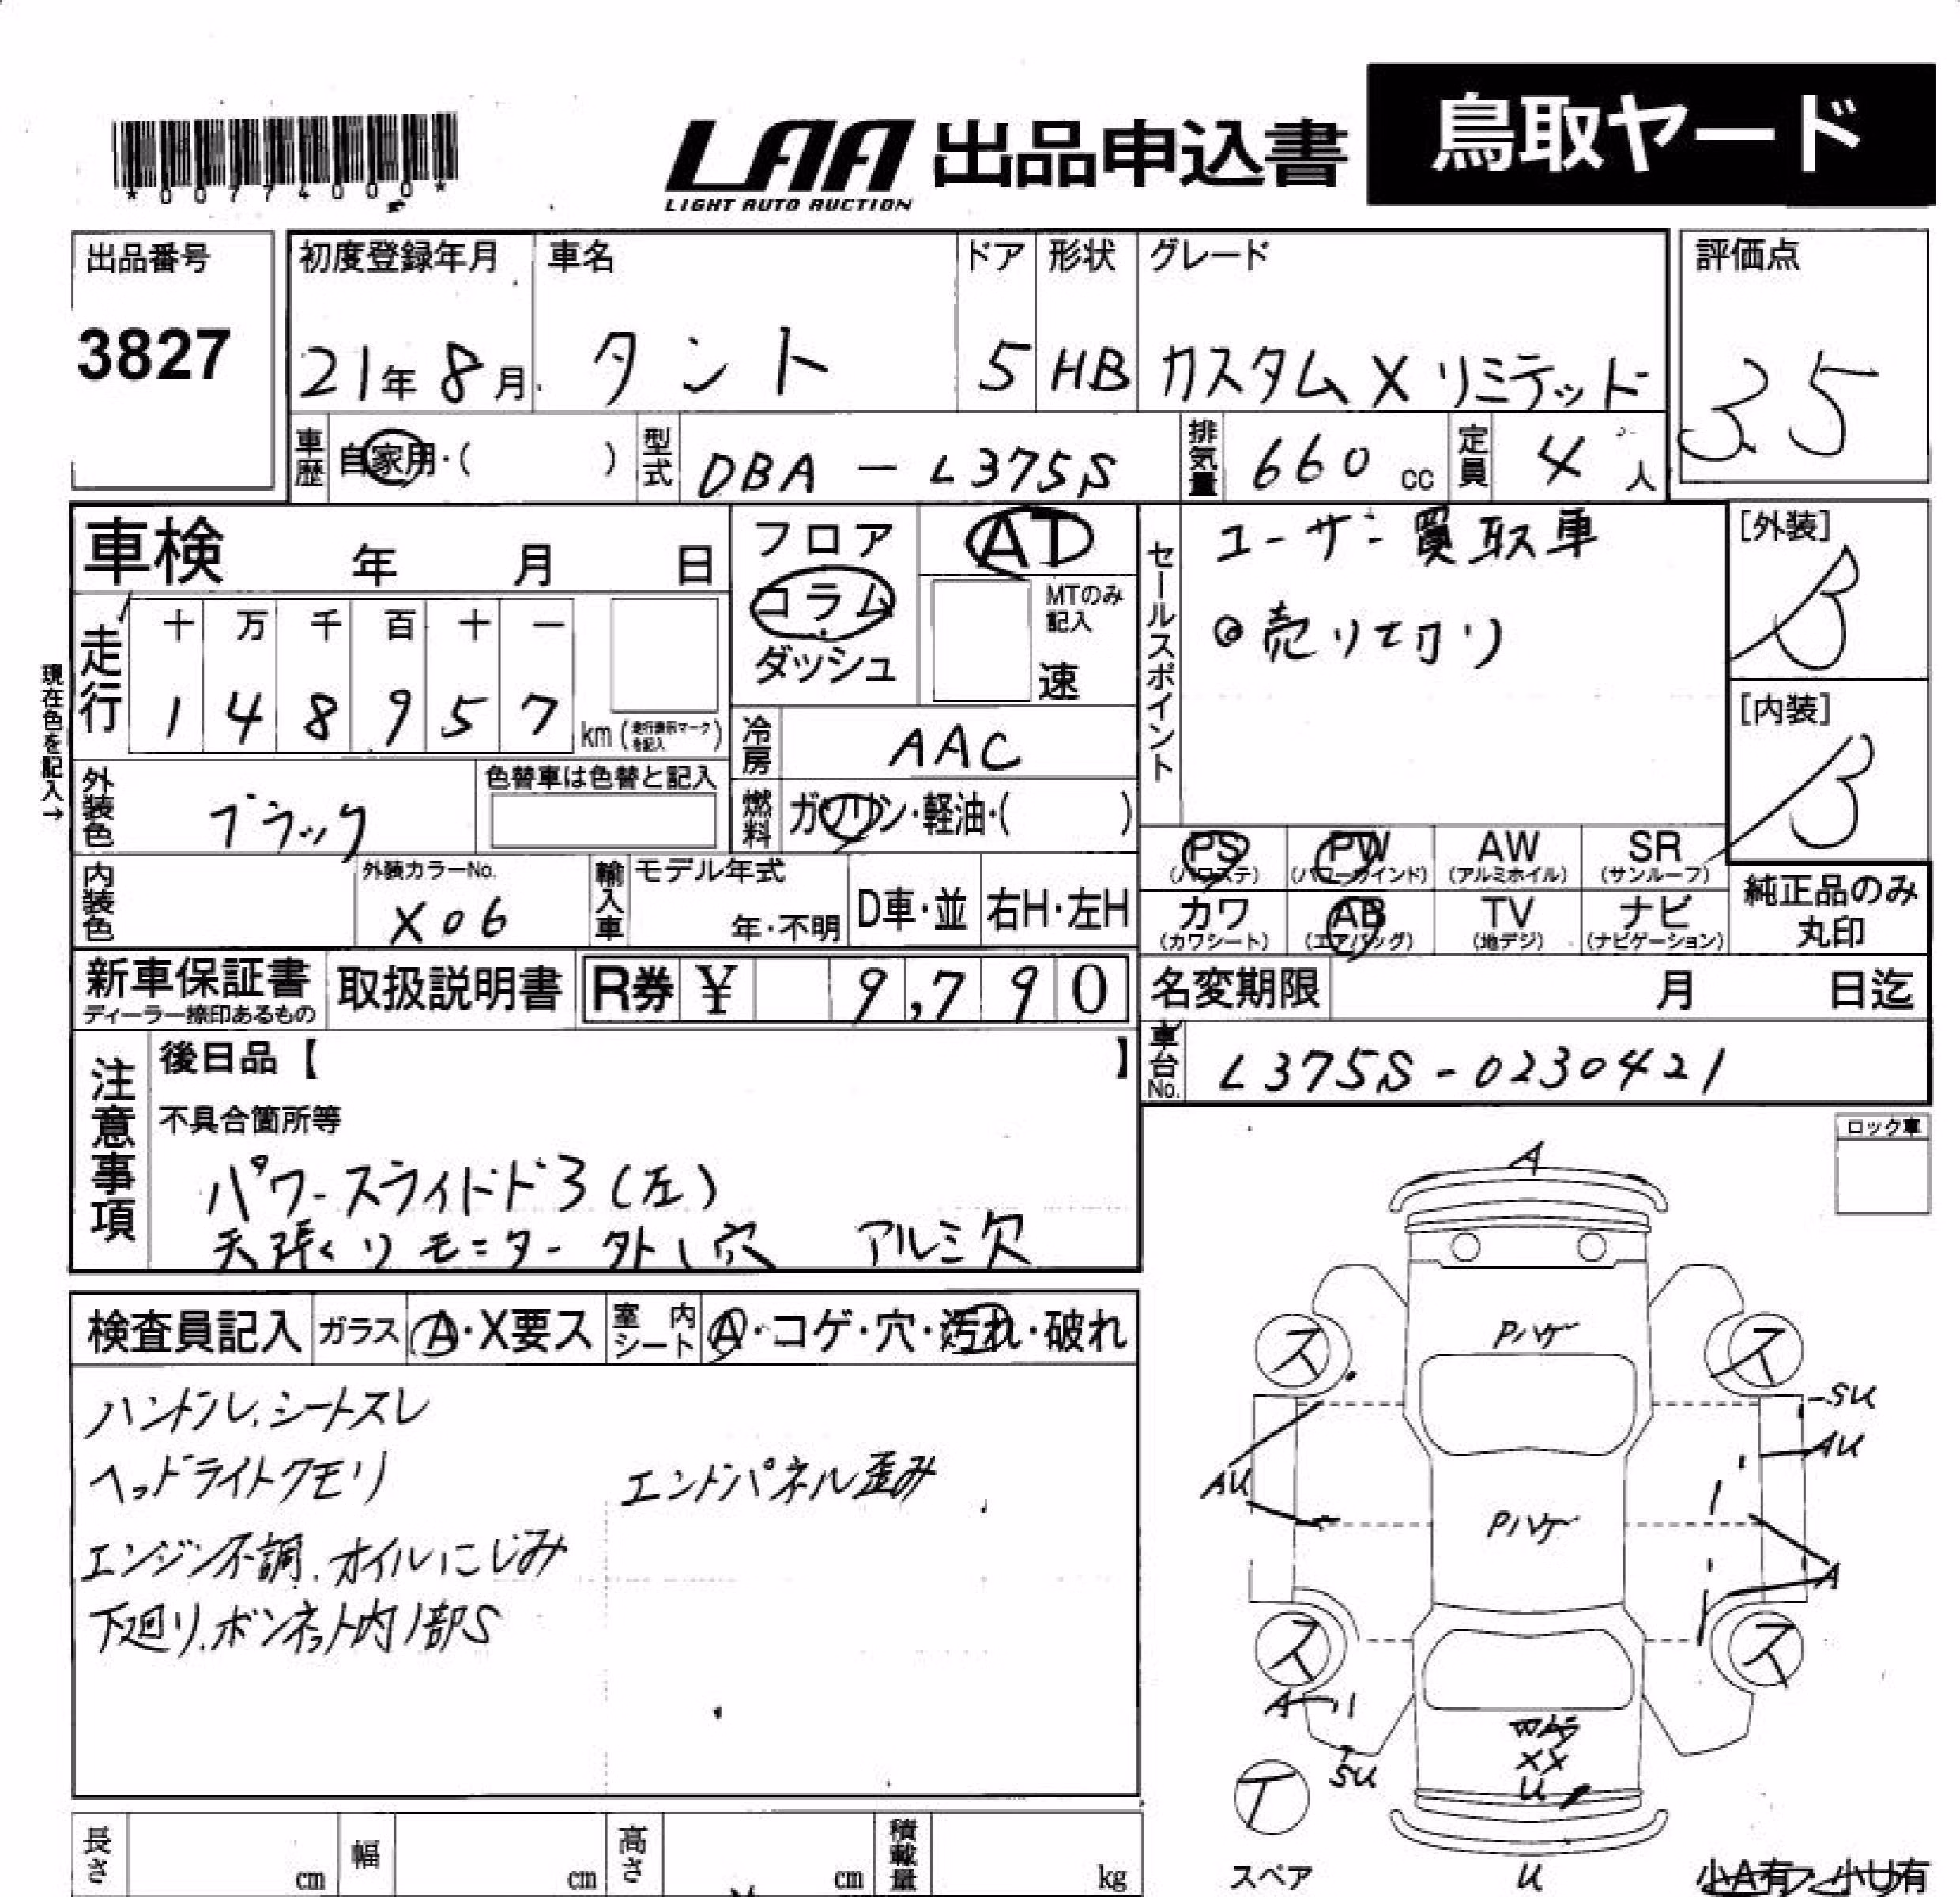 *0077400 0*
LAA 出品申込書 鳥取ヤード
LIGHT AUTO AUCTION
出品番号 初度登録年月 車名 ドア 形状 グレード 評価点
3827 21年8月 タント 5 HB カスタムXリミテッド 35
車歴 自家用・( ) 型式 DBA-L375S 排気量 660 cc 定員 4人
車検 年 月 日
フロア
コラム
ダッシュ
AT
MTのみ
記入
速
セールスポイント
ユーザー買取車
◎売り切り
[外装]
B
[内装]
B
現在色を記入→
走行 十 万 千 百 十 一
1 4 8 9 5 7 km (走行表示マークを記入)
冷房 AAC
外装色 ブラック 色替車は色替と記入
燃料 ガソリン・軽油・( )
PS AW SR
PW
(パワステ) (パワーウインド) (アルミホイル) (サンルーフ)
カワ AB TV ナビ
(カワシート) (エアバッグ) (地デジ) (ナビゲーション)
純正品のみ
丸印
内装色 外装カラーNo.
X06
輸入車 モデル年式
年・不明 D車・並 右H・左H
新車保証書
ディーラー捺印あるもの
取扱説明書 R券 ¥ 9,790
名変期限 月 日迄
車台No. L375S-0230421
注意事項
後日品【 】
不具合箇所等
パワースライドドア(左)
天張りモニター外し穴 アルミ欠
ロック車
検査員記入 ガラス A・X要ス 室内シート A・コゲ・穴・汚れ・破れ
ハンドル、シートスレ
ヘッドライトクモリ エンドパネル歪み
エンジン不調、オイルにじみ
下廻り、ボンネット内1部S
A
Pハゲ
ス ス
SU
AU
AU
Pハゲ
A
ス ス
A
SU
XX
U
T
スペア
U
小A有 小U有
長さ cm 幅 cm 高さ cm 積載量 kg